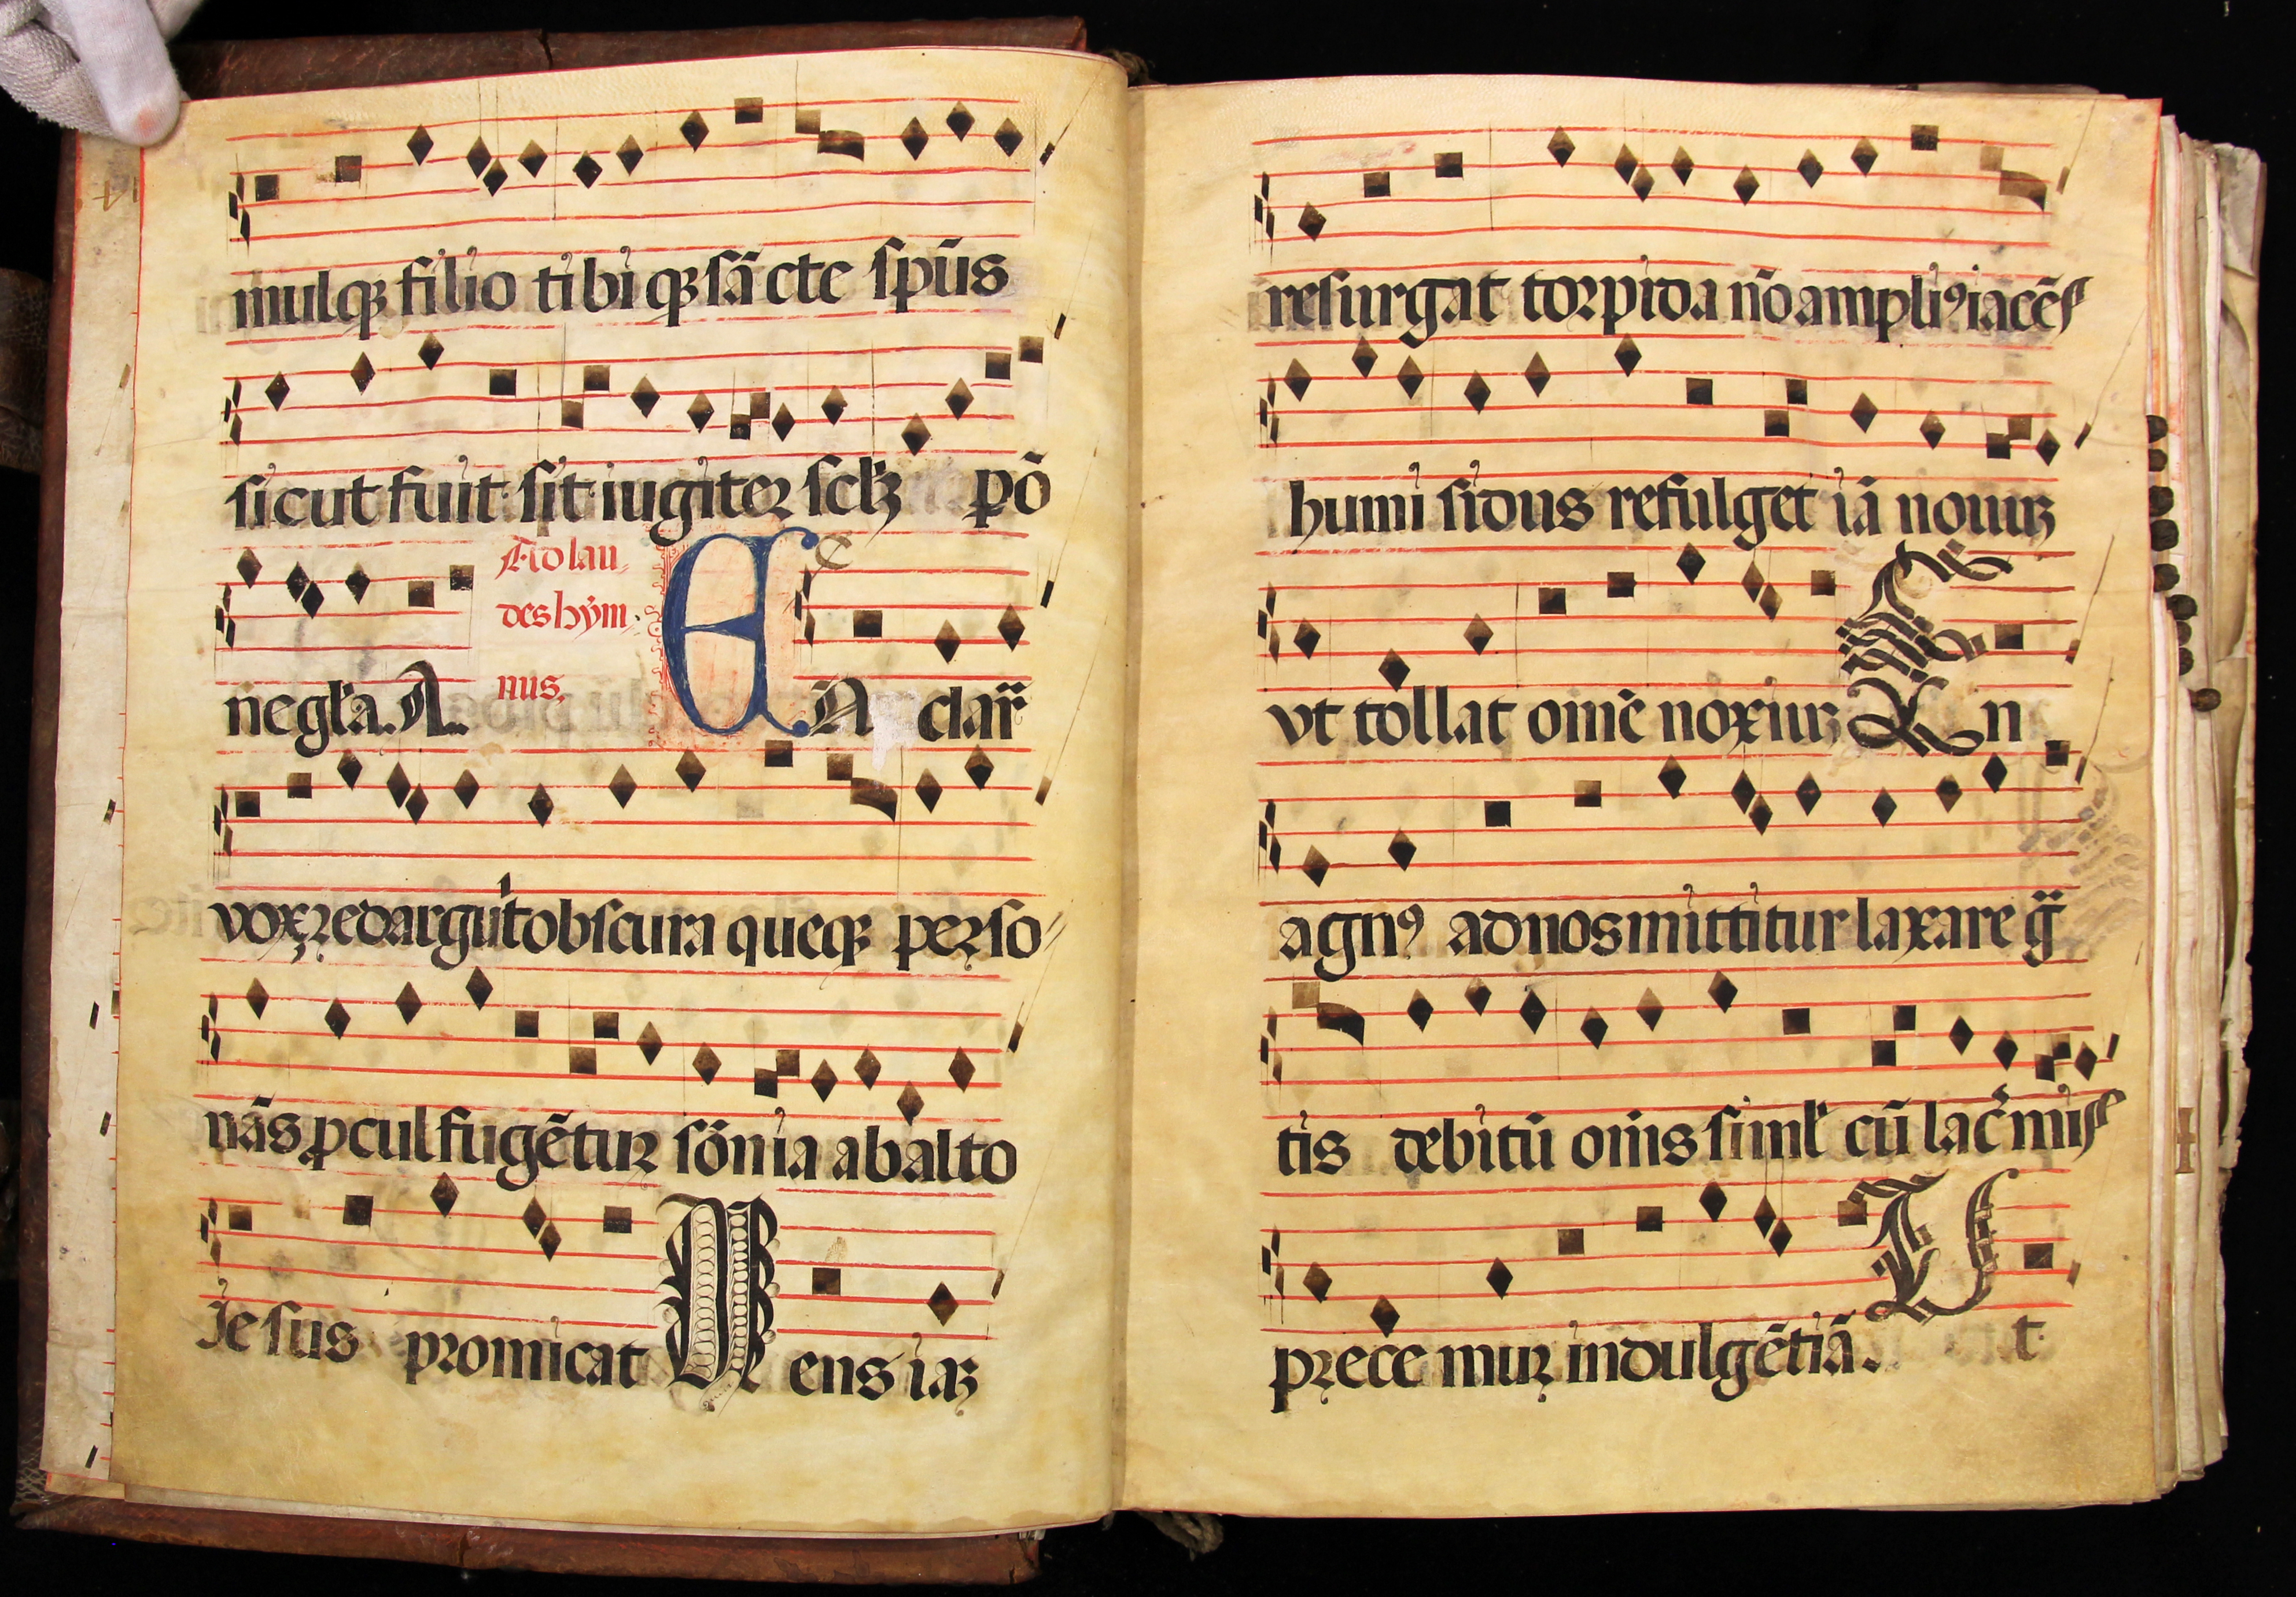 mulqꝫ filio tibi qꝫ sācte spūs
sicut fuit sit iugiter sclꝫ pō
ne gl̄a. A.
Ad lau
des hym
nus.
EN clar̄
vox redarguit obscura queqꝫ perso
nās ꝓcul fugētur sōnia ab alto
Jesus promicat Mens iaꝫ
resurgat torpida nō ampliꝰ iacēs
humi sidus refulget iā nouuꝫ
vt tollat omē noxiuꝫ En
agnꝰ ad nos mittitur laxare gͣ
tis debitū om̄s siml̓ cū lac̓mis
prece mur indulgētiā. Vt